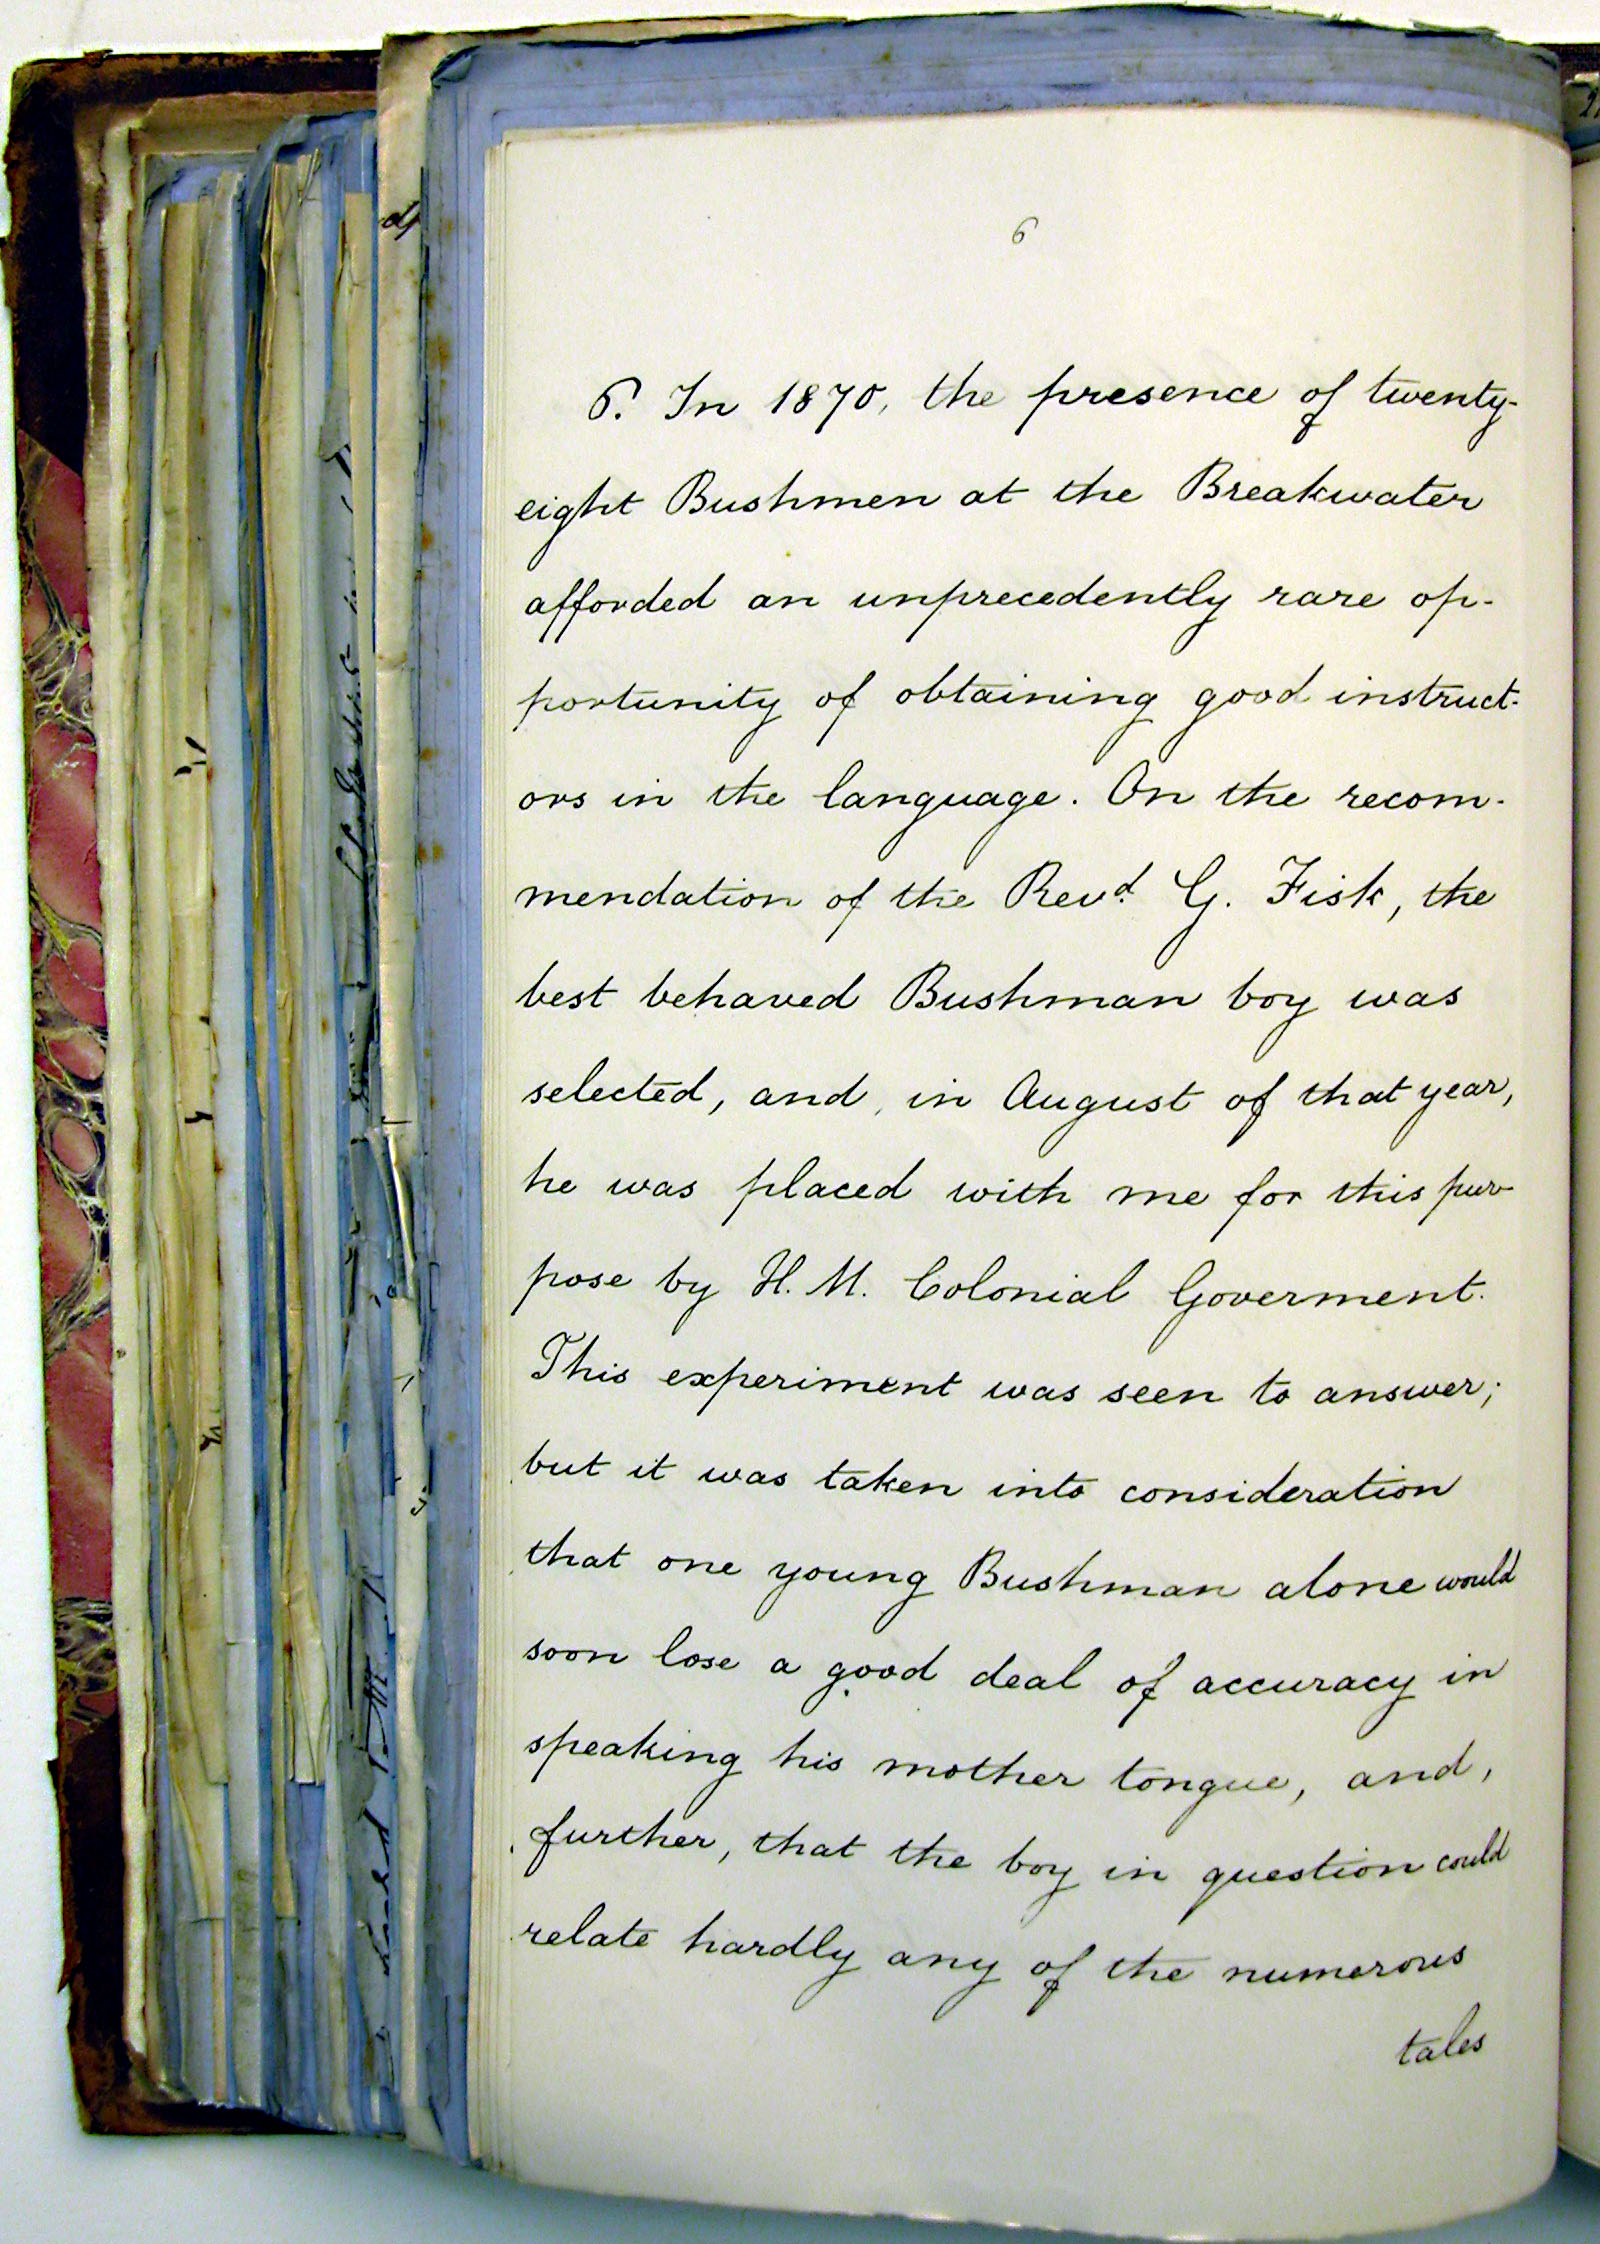 6
6. In 1870, the presence of twenty-
eight Bushmen at the Breakwater
afforded an unprecedently rare op-
portunity of obtaining good instruct-
ors in the language. On the recom-
mendation of the Revd. G. Fisk, the
best behaved Bushman boy was
selected, and, in August of that year,
he was placed with me for this pur-
pose by H. M. Colonial Goverment.
This experiment was seen to answer;
but it was taken into consideration
that one young Bushman alone would
soon lose a good deal of accuracy in
speaking his mother tongue, and,
further, that the boy in question could
relate hardly any of the numerous
tales